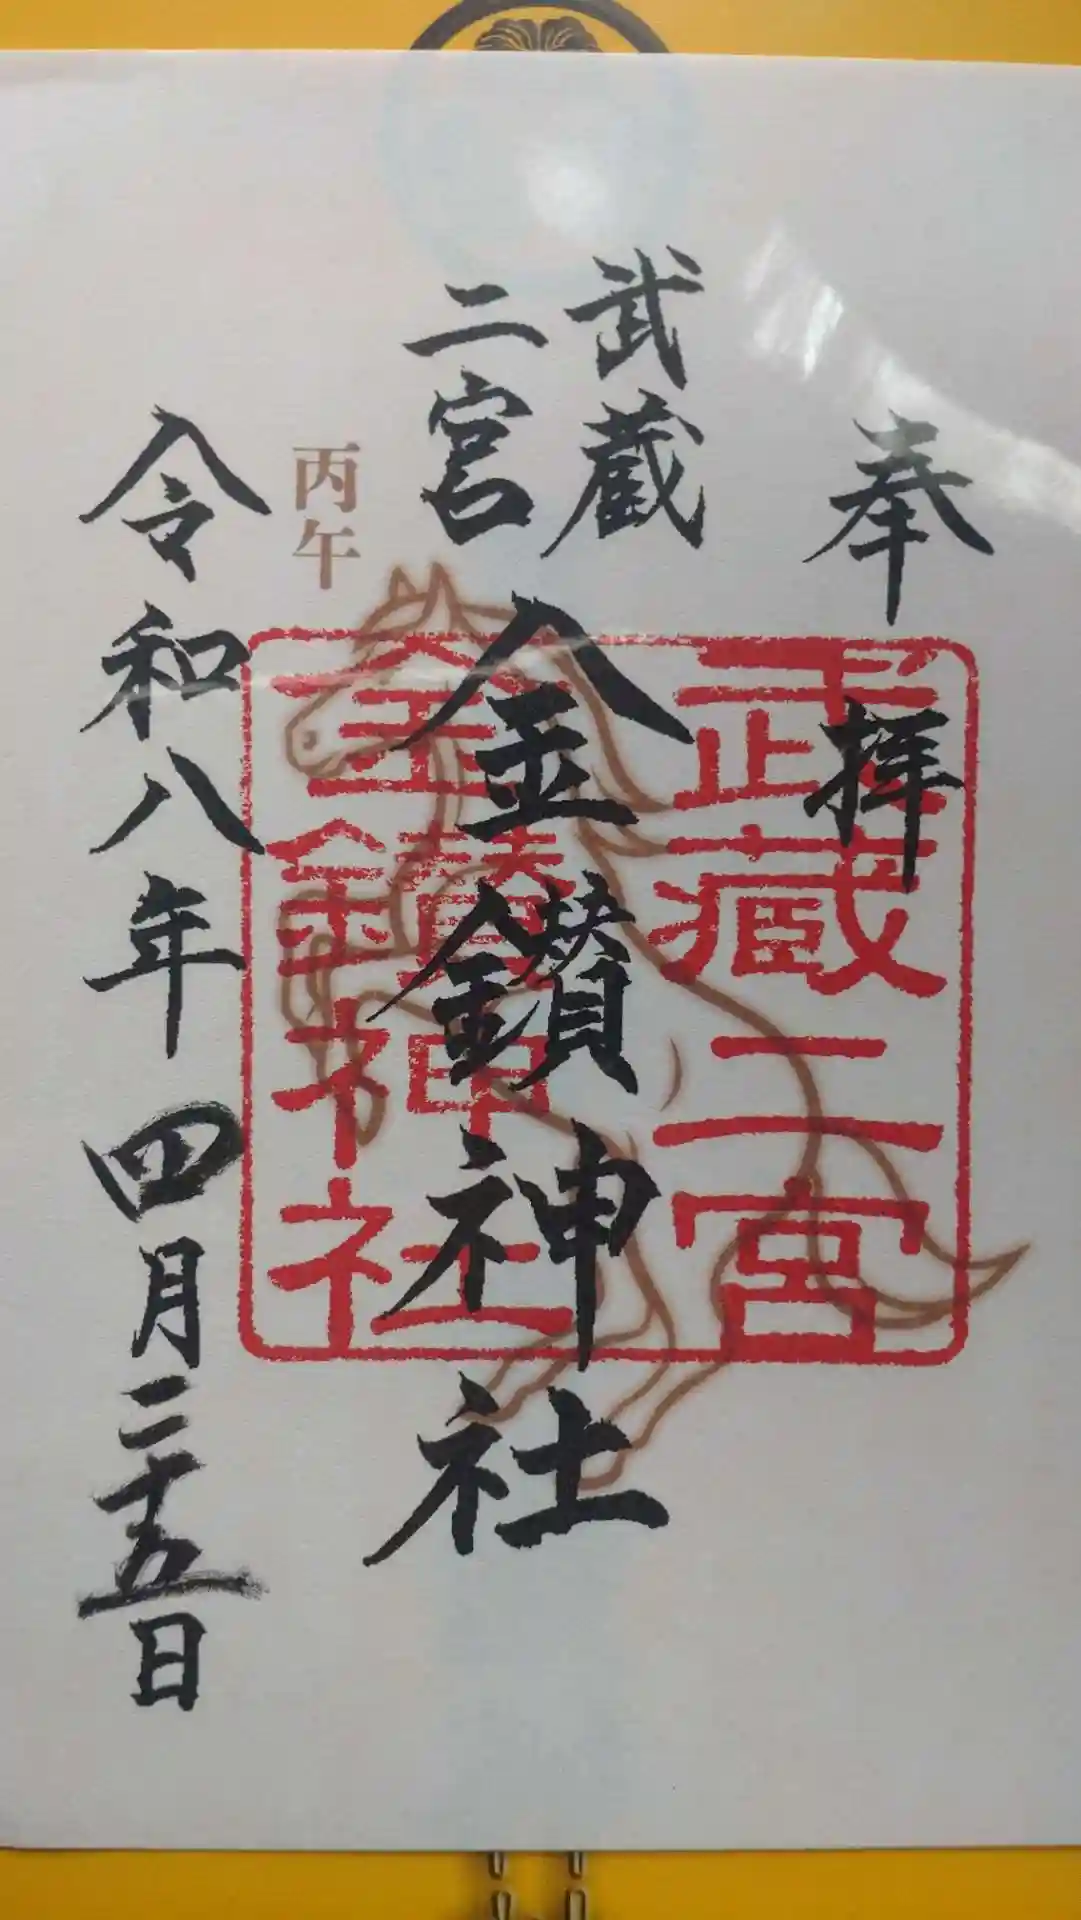 奉拝
武蔵
二宮
金鑚神社
丙午
令和八年四月二十五日
武蔵二宮
金鑚神社